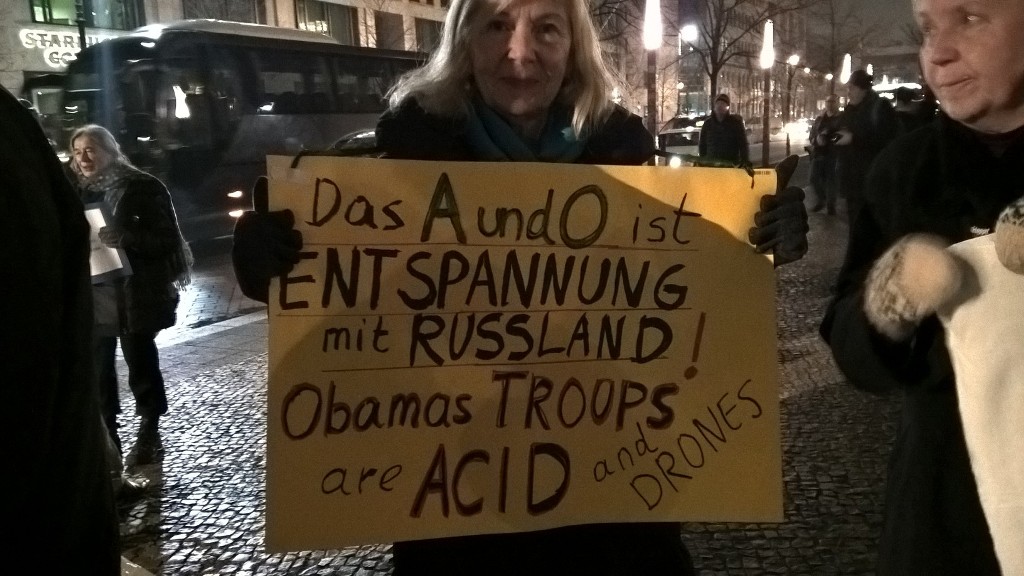 STARBU
CO
Das A und O ist
ENTSPANNUNG
mit RUSSLAND!
Obamas TROUPS
are ACID and DRONES